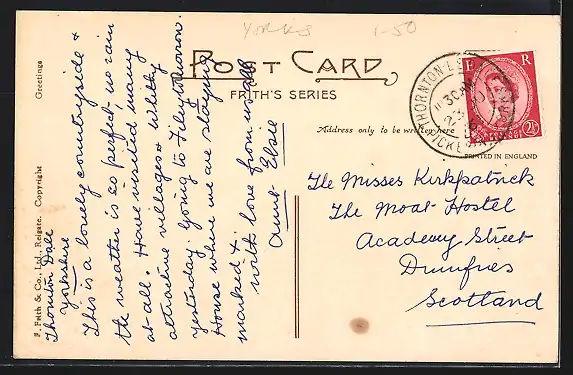 Yorks
1-50
POST CARD
FRITH'S SERIES
Address only to be written here
E R
2½
THORNTON-LE
PICKERING
PRINTED IN ENGLAND
F. Frith & Co., Ltd., Reigate. Copyright
Greetings
Thornton Dale
Yorkshire
This is a lonely countryside &
the weather is so perfect, no rain
at all. Have visited many
attractive villages & Whitby
yesterday. Going to Filey tomorrow.
House where we are staying
marked +.
with love from us all
Aunt Elsie
The Misses Kirkpatrick
The Moat Hostel
Academy Street
Dumfries
Scotland